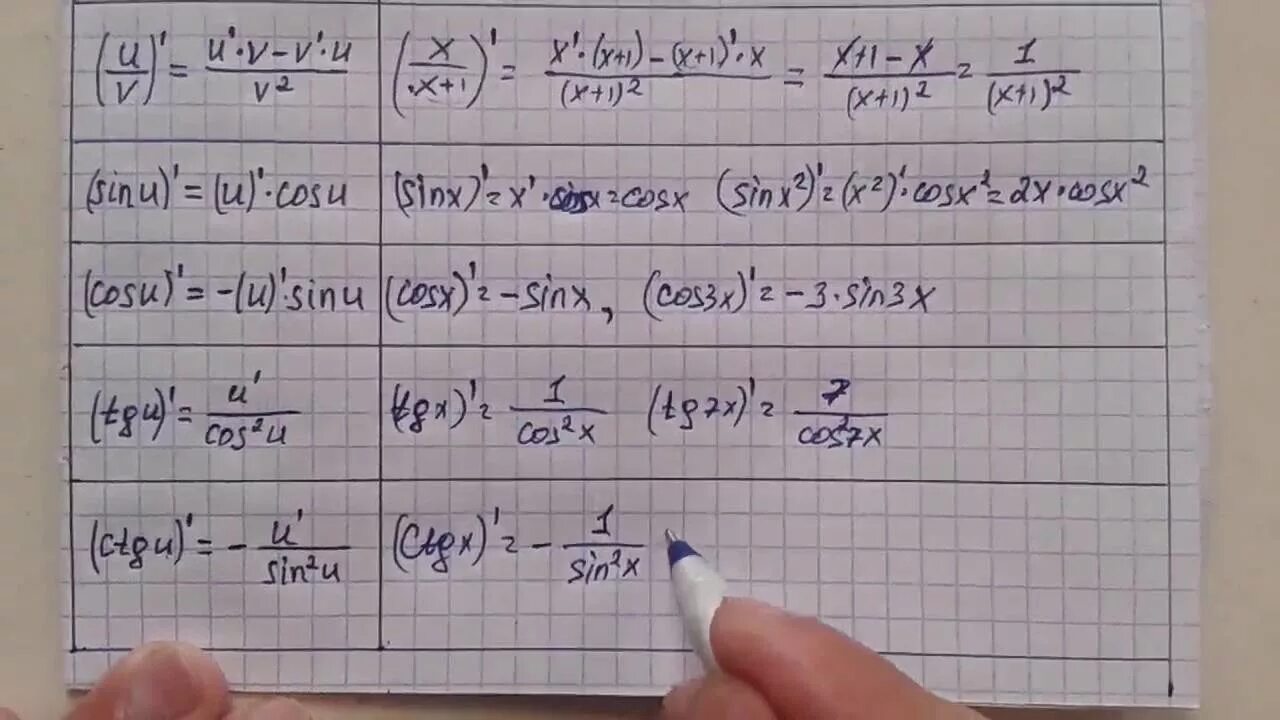 (u/v)' = (u'·v − v'·u)/v² (x/(x+1))' = (x'·(x+1) − (x+1)'·x)/(x+1)² = (x+1−x)/(x+1)² = 1/(x+1)²
(sinu)' = (u)'·cosu (sinx)' = x'·cosx = cosx (sinx²)' = (x²)'·cosx² = 2x·cosx²
(cosu)' = −(u)'·sinu (cosx)' = −sinx, (cos3x)' = −3·sin3x
(tgu)' = u'/cos²u (tgx)' = 1/cos²x (tg7x)' = 7/cos²7x
(ctgu)' = − u'/sin²u (ctgx)' = − 1/sin²x